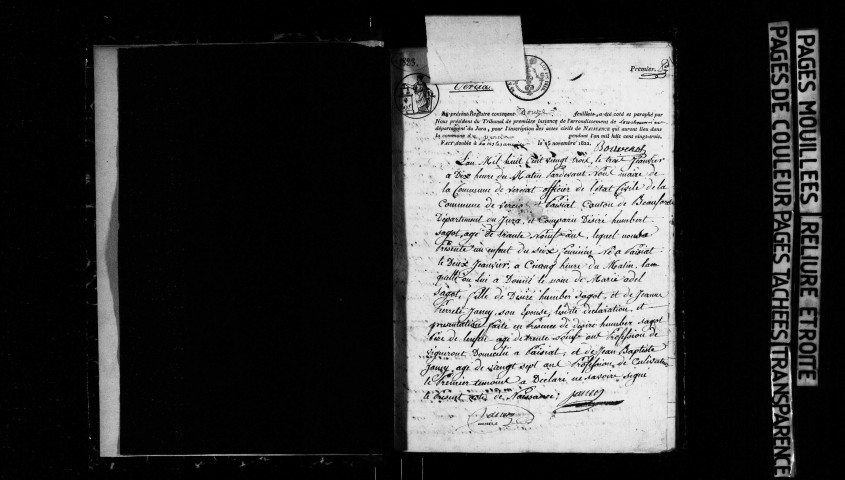 1823.
Premier.
Vercia
Le présent Registre contenant douze feuillets, a été coté et paraphé par
Nous président du Tribunal de première instance de l'arrondissement de
département du Jura, pour l'inscription des actes civils de NAISSANCE qui auront lieu dans
la commune de Vercia pendant l'an mil huit cent vingt-trois.
Fait double à Lons-le-saunier le 15 novembre 1822.
L'an Mil huit Cent vingt trois, le trois Jeanvier
a Dix heure du Matin Pardevant Nous maire de
la Commune de verciat officier de l'état Civile de la
Commune de Vercia et Paisiat Canton de Beaufort
Département du Jura, est Comparu Désiré humbert
sagot, age de trante Neuf ans, lequel nous a
Présenté un enfant du sexe feminin Né a Paisiat
le Deux Jeanvier, a Cinq heure du Matin, la
quelle on lui a Donné le nom de Marie adel
Sagot, fille de Désiré humber Sagot, et de Jeanne
Pierrete Jancy, son Epouse, lesdite declaration et
presentation Faite en Présence de désiré humber sagot
Père de l'enfan age de trante neuf ant Profession de
vigniront Domicilié a Paisiat, et de Jean Baptiste
Jancy, age de vaingt sept ant Profession de Cultivateur
le Premier temoint a Déclaré ne savoir signé
le Présent acte de Naissance;
maire
PAGES MOUILLEES RELIURE ETROITE
PAGES DE COULEUR PAGES TACHEES TRANSPARENCE